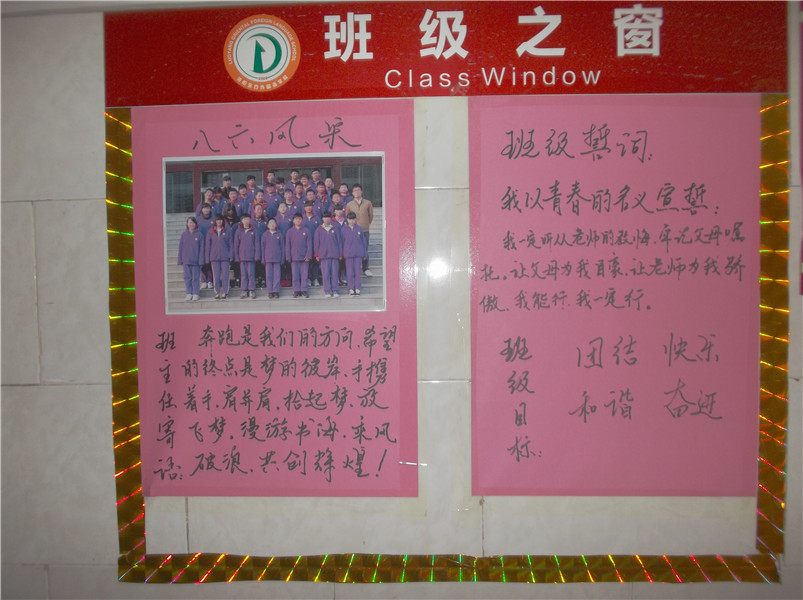 班级之窗
Class Window
八六风采
班主任寄语:
奔跑是我们的方向,希望
的终点是梦的彼岸,手携
着手,肩并肩,拾起梦,放
飞梦,漫游书海,乘风
破浪,共创辉煌!
班级誓词:
我以青春的名义宣誓:
我一定听从老师的教悔,牢记父母嘱
托。让父母为我自豪,让老师为我骄
傲,我能行,我一定行。
班级目标:
团结 快乐
和谐 奋进